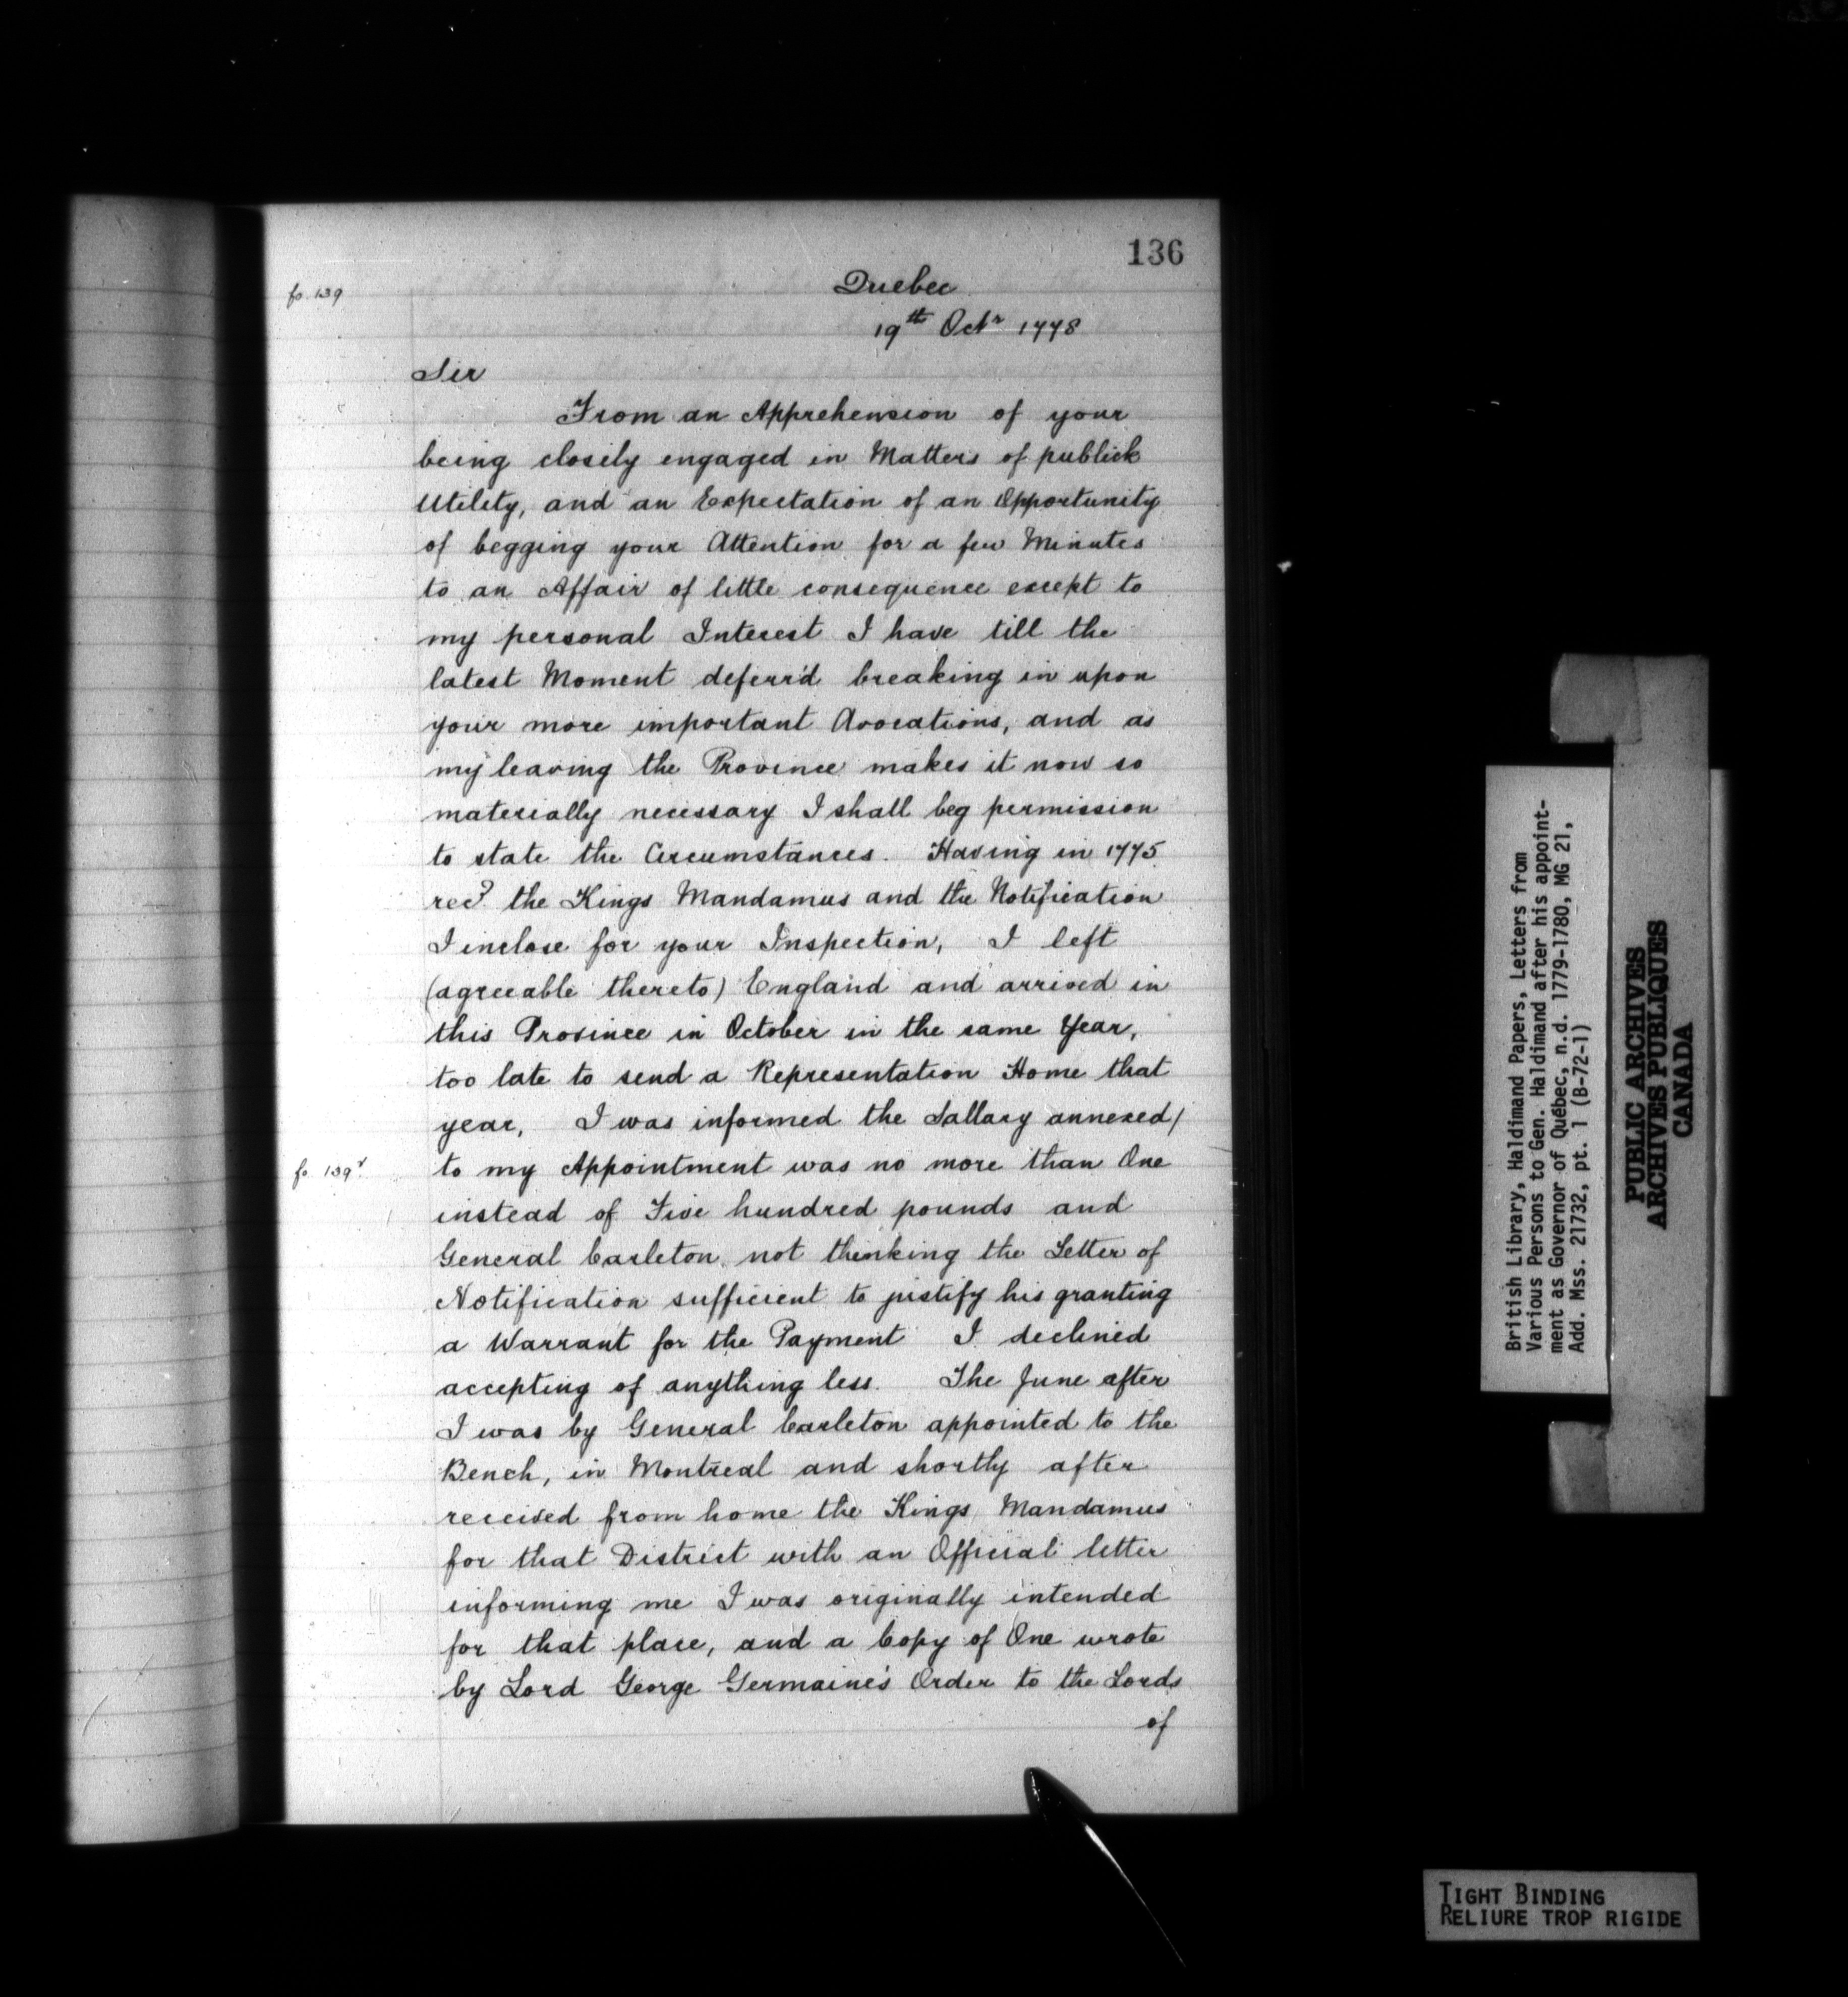 136
fo. 139
Quebec
19th Octr 1778
Sir
From an Apprehension of your
being closely engaged in Matters of publick
Utility, and an Expectation of an Opportunity
of begging your Attention for a few Minutes
to an Affair of little consequence except to
my personal Interest I have till the
latest Moment deferr'd breaking in upon
your more important Avocations, and as
my leaving the Province makes it now so
materially necessary I shall beg permission
to state the Circumstances. Having in 1775
recd the Kings Mandamus and the Notification
I inclose for your Inspection, I left
(agreeable thereto) England and arrived in
this Province in October in the same Year,
too late to send a Representation Home that
year, I was informed the Sallary annexed/
fo. 139v
to my Appointment was no more than One
instead of Five hundred pounds and
General Carleton not thinking the Letter of
Notification sufficient to justify his granting
a Warrant for the Payment I declined
accepting of anything less. The June after
I was by General Carleton appointed to the
Bench, in Montreal and shortly after
received from home the Kings Mandamus
for that District with an Official letter
informing me I was originally intended
for that place, and a Copy of One wrote
by Lord George Germaine's Order to the Lords
of
British Library, Haldimand Papers, Letters from
Various Persons to Gen. Haldimand after his appoint-
ment as Governor of Québec, n.d. 1779-1780, MG 21,
Add. Mss. 21732, pt. 1 (B-72-1)
PUBLIC ARCHIVES
ARCHIVES PUBLIQUES
CANADA
TIGHT BINDING
RELIURE TROP RIGIDE